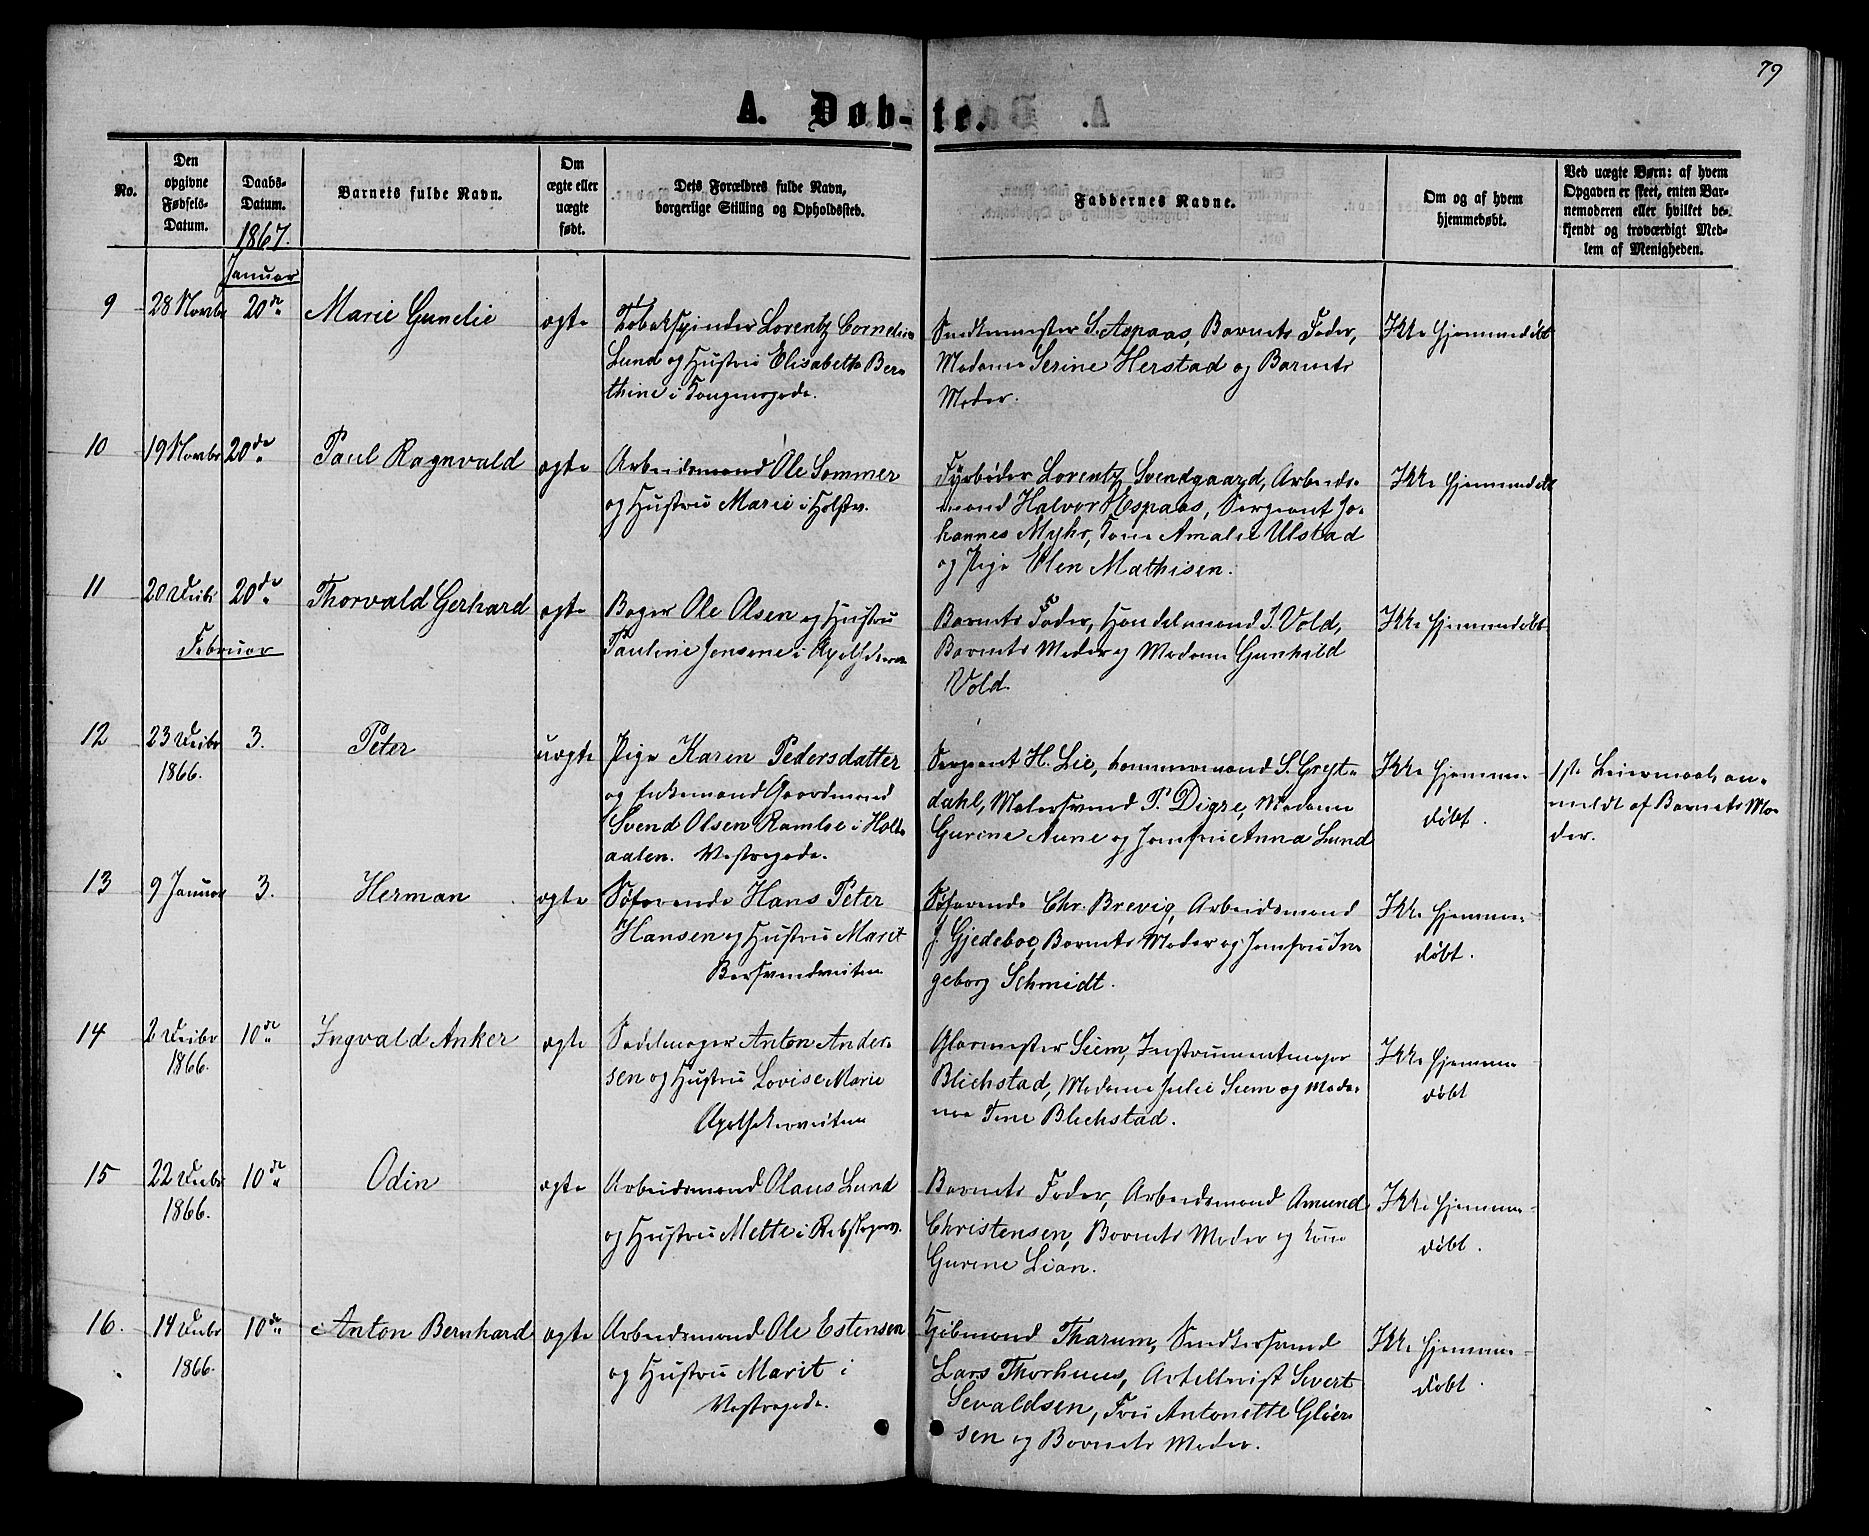 79
A. Døb-te.
No.
Den opgivne Fødsels-Datum.
Daabs-Datum.
1867.
Barnets fulde Navn.
Om ægte eller uægte født.
Dets Forældres fulde Navn, borgerlige Stilling og Opholdssted.
Faddernes Navne.
Om og af hvem hjemmedøbt.
Ved uægte Børn: af hvem Opgaven er skeet, enten Barnemoderen eller hvilket bekjendt og troværdigt Medlem af Menigheden.
Januar
9 28 Novbr 20de Marie Gunelie ægte
Lorentz Cornelius
Lund og Hustru Elisabeth Ber-
thine i Kongensgade.
Snedkermester S. Aspaas, Barnets Fader,
Madame Serine Herstad og Barnets
Moder.
Ikke hjemmedøbt
10 19 Novbr 20de Paul Ragnvald ægte
Arbeidsmand Ole Sommer
og Hustru Marie i Holstv.
Fyrbøder Lorentz Svendgaard, Arbeids-
mand Halvor Espaas, Sergeant Jo-
hannes Myhr, Kone Amalie Ulstad
og Pige Elen Mathisen.
Ikke hjemmedøbt
11 20 Decbr 20de Thorvald Gerhard ægte
Bager Ole Olsen og Hustru
Pauline Jensene i
Barnets Fader, Handelsmand I. Vold,
Barnets Moder og Madame Gunhild
Vold.
Ikke hjemmedøbt
Februar
12 23 Decbr 3. Peter uægte
1866.
Pige Karen Pedersdatter
og Enkemand Gaardmand
Svend Olsen Ramloe i Holt-
aalen. Vestregade.
Sergeant H. Lie, S. Grøt-
dahl, Malersvend P. Digre, Madame
Gurine Aune og Jomfru Anna Lund
Ikke hjemme-
døbt.
1ste Leiermaal, an-
meldt af Barnets Mo-
der.
13 9 Januar 3. Herman ægte
Søfarende Hans Peter
Hansen og Hustru Marit
Bersvendveiten
Søfarende Chr. Brevig, Arbeidsmand
J. Gjedeboe, Barnets Moder og Jomfru In-
geborg Schmidt.
Ikke hjemme-
døbt.
14 2 Decbr 10de Ingvald Anker ægte
1866.
Sadelmager Anton Ander-
sen og Hustru Lovise Marie
Apothekerveiten
Glarmester Siem, Instrumentmager
Blichstad, Madame Julie Siem og Mada-
me Tine Blichstad.
Ikke hjemme-
døbt
15 22 Decbr 10de Odin ægte
1866.
Arbeidsmand Olaus Lund
og Hustru Mette i Rebslagerv.
Barnets Fader, Arbeidsmand Amund
Christensen, Barnets Moder og Kone
Gurine Lian.
Ikke hjemme-
døbt.
16. 14 Decbr 10de Anton Bernhard ægte
1866.
Arbeidsmand Ole Estensen
og Hustru Marit i
Vestregade.
Kjøbmand Tharum, Snedkersvend
Lars Thorhuus, Artellerist Sivert
Sevaldsen, Fru Antonette Gløer-
sen og Barnets Moder.
Ikke hjemme-
døbt.